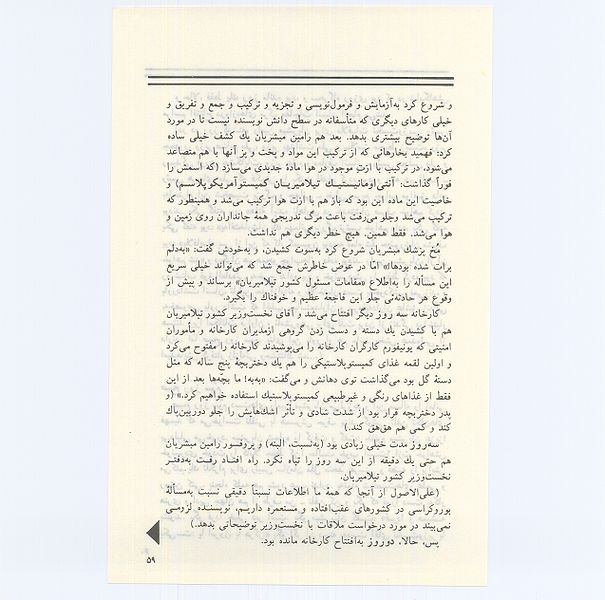 و شروع کرد به‌آزمایش و فرمول‌نویسی و تجزیه و ترکیب و جمع و تفریق و
خیلی کارهای دیگری که متأسفانه در سطح دانش نویسنده نیست تا در مورد
آن‌ها توضیح بیشتری بدهد. بعد هم رامین مبشریان یك کشف خیلی ساده
کرد: فهمید بخارهائی که از ترکیب این مواد و پخت و پز آنها با هم متصاعد
می‌شود، در ترکیب با ازتِ موجود در هوا مادهٔ جدیدی می‌سازد (که اسمش را
فوراً گذاشت: آنتی‌اومانیستیـك تیلامیریـان کمیستوآمریکوپلاسـم) و
خاصیت این ماده این بود که باز هم با ازت هوا ترکیب می‌شد و همینطور که
ترکیب می‌شد وجلو می‌رفت باعث مرگ تدریجی همهٔ جانداران روی زمین و
هوا می‌شد. فقط همین. هیچ خطر دیگری هم نداشت.
مُخ پزشك مبشریان شروع کرد به‌سوت کشیدن، و به‌خودش گفت: «به‌دلم
برات شده بودها!» امّا در عوض خاطرش جمع شد که می‌تواند خیلی سریع
این مسأله را به‌اطلاع «مقامات مسئول کشور تیلامیریان» برساند و پیش از
وقوع هر حادثه‌ئی جلو این فاجعهٔ عظیم و خوفناك را بگیرد.
کارخانه سه روز دیگر افتتاح می‌شد و آقای نخست‌وزیر کشور تیلامیریان
هم با کشیدن یك دسته و دست زدن گروهی ازمدیران کارخانه و مأموران
امنیتی که یونیفورم کارگران کارخانه را می‌پوشیدند کارخانه را مفتوح می‌کرد
و اولین لقمه غذای کمیستوپلاستیکی را هم یك دختربچهٔ پنج ساله که مثل
دستهٔ گل بود می‌گذاشت توی دهانش و می‌گفت: «به‌به! ما بچّه‌ها بعد از این
فقط از غذاهای رنگی و غیرطبیعی کمیستوپلاستیك استفاده خواهیم کرد.» (و
پدر دختربچه قرار بود از شدت شادی و تأثّر اشك‌هایش را جلو دوربین‌پاك
کند و کمی هم هق‌هق کند.)
سه‌روز مدت خیلی زیادی بود (به‌نسبت، البته) و پروفسور رامین مبشریان
هم حتی یك دقیقه از این سه روز را تباه نکرد. راه افتـاد رفـت به‌دفتـر
نخست‌وزیر کشور تیلامیریان.
(علی‌الاصول از آنجا که همهٔ ما اطلاعات نسبتاً دقیقی نسبت به‌مسألهٔ
بوروکراسی در کشورهای عقب‌افتاده و مستعمره داریـم، نویسنـده لزومـی
نمی‌بیند در مورد درخواست ملاقات با نخست‌وزیر توضیحاتی بدهد.)
پس، حالا، دوروز به‌افتتاح کارخانه مانده بود.
۵۹